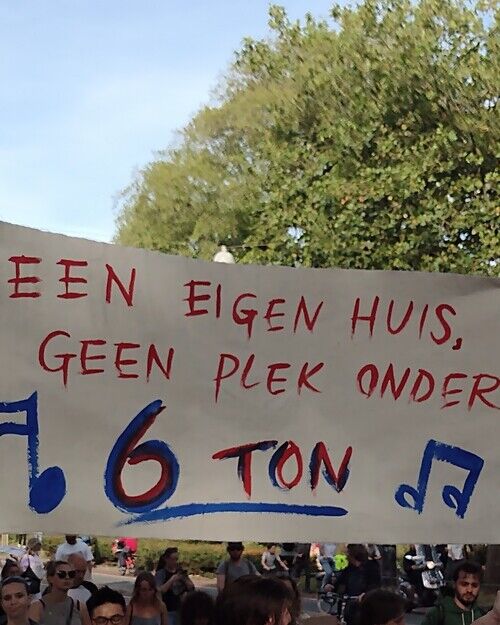 EEN EIGEN HUIS,
GEEN PLEK ONDER
6 TON